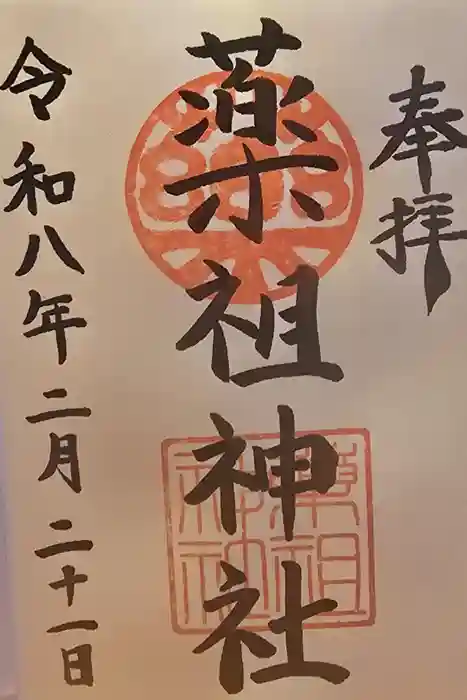 奉拝
薬祖神社
薬祖神社
令和八年二月二十一日